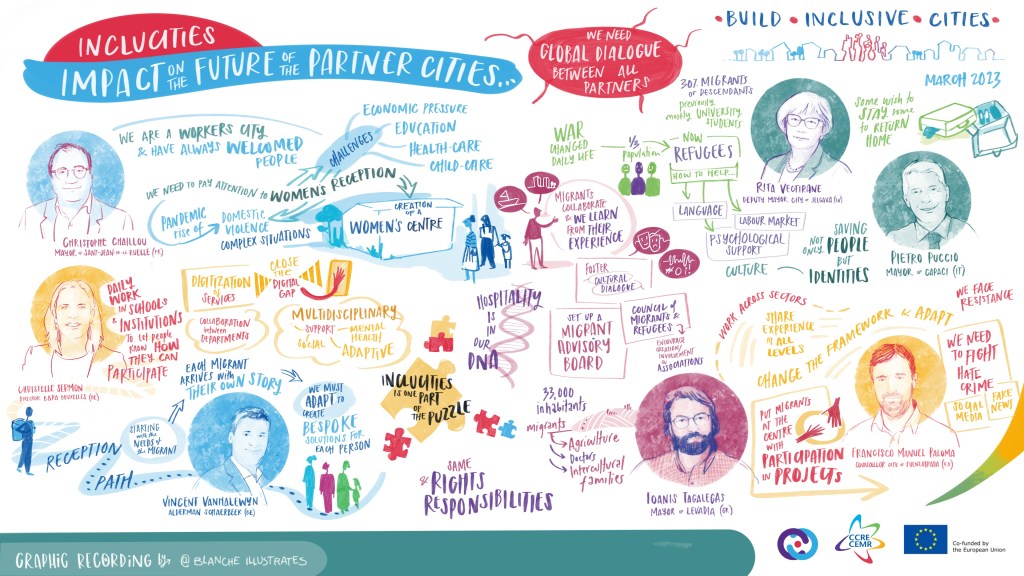 INCLUCITIES
IMPACT ON THE FUTURE OF THE PARTNER CITIES...
WE NEED
GLOBAL DIALOGUE
BETWEEN ALL
PARTNERS
• BUILD • INCLUSIVE • CITIES •
MARCH 2023
WE ARE A WORKERS CITY
& HAVE ALWAYS WELCOMED
PEOPLE
CHALLENGES
ECONOMIC PRESSURE
EDUCATION
HEALTH-CARE
CHILD-CARE
WE NEED TO PAY ATTENTION TO WOMENS RECEPTION
PANDEMIC
rise of
DOMESTIC
VIOLENCE
COMPLEX SITUATIONS
CREATION
OF A
WOMEN'S CENTRE
CHRISTOPHE CHAILLOU
MAYOR OF SAINT-JEAN DE LA RUELLE (FR)
DAILY
WORK
IN SCHOOLS
& INSTITUTIONS
TO let people
know HOW
THEY CAN
PARTICIPATE
DIGITIZATION
OF SERVICES
CLOSE
THE
DIGITAL
GAP
COLLABORATION
between
DEPARTMENTS
MULTIDISCIPLINARY
SUPPORT
SOCIAL
MENTAL
HEALTH
ADAPTIVE
EACH MIGRANT
ARRIVES with
THEIR OWN STORY
STARTING
with the
NEEDS OF
the MIGRANT
RECEPTION
PATH
VINCENT VANHALEWYN
ALDERMAN SCHAERBEEK (BE)
WE MUST
ADAPT TO
CREATE
BESPOKE
SOLUTIONS FOR
EACH PERSON
INCLUCITIES
IS ONE PART
OF THE PUZZLE
HOSPITALITY
IS IN
OUR
DNA
SAME
RIGHTS
& RESPONSIBILITIES
WAR
CHANGED
DAILY LIFE
1/3
population
30% MIGRANTS
or DESCENDANTS
previously
mostly UNIVERSITY
STUDENTS
NOW
REFUGEES
HOW TO HELP...
LANGUAGE
LABOUR MARKET
PSYCHOLOGICAL
SUPPORT
CULTURE
RITA VECTIRANE
DEPUTY MAYOR, CITY OF JELGAVA (LV)
SOME WISH TO
STAY, some
to RETURN
HOME
SAVING
NOT ONLY PEOPLE
BUT
IDENTITIES
PIETRO PUCCIO
MAYOR OF CAPACI (IT)
MIGRANTS
COLLABORATE
& WE LEARN
FROM THEIR
EXPERIENCE
FOSTER
CULTURAL
DIALOGUE
SET UP A
MIGRANT
ADVISORY
BOARD
COUNCIL OF
MIGRANTS &
REFUGEES
ENCOURAGE
CREATION/
INVOLVEMENT
IN ASSOCIATIONS
33.000
inhabitants
migrants
Agriculture
Doctors
Intercultural
families
IOANIS TAGALEGAS
MAYOR OF LEVADIA (GR)
WORK ACROSS SECTORS
SHARE
EXPERIENCE
at ALL
LEVELS
CHANGE THE FRAMEWORK & ADAPT
WE FACE
RESISTANCE
WE NEED
TO FIGHT
HATE
CRIME
SOCIAL
MEDIA
FAKE
NEWS
PUT MIGRANTS
AT THE
CENTRE
WITH
PARTICIPATION
IN PROJECTS
FRANCISCO MANUEL PALOMA
COUNCILLOR CITY OF FUENLABRADA (ES)
GRAPHIC RECORDING By @BLANCHE ILLUSTRATES
CCRE
CEMR
Co-funded by
the European Union